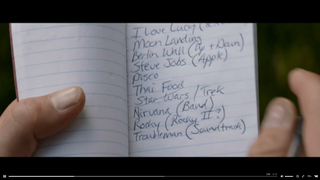 I Love Lucy
Moon Landing
Berlin Wall (Up + Down)
Steve Jobs (Apple)
Disco
Thai Food
Star Wars / Trek
Nirvana (Band)
Rocky (Rocky II?)
Troubleman (Soundtrack)